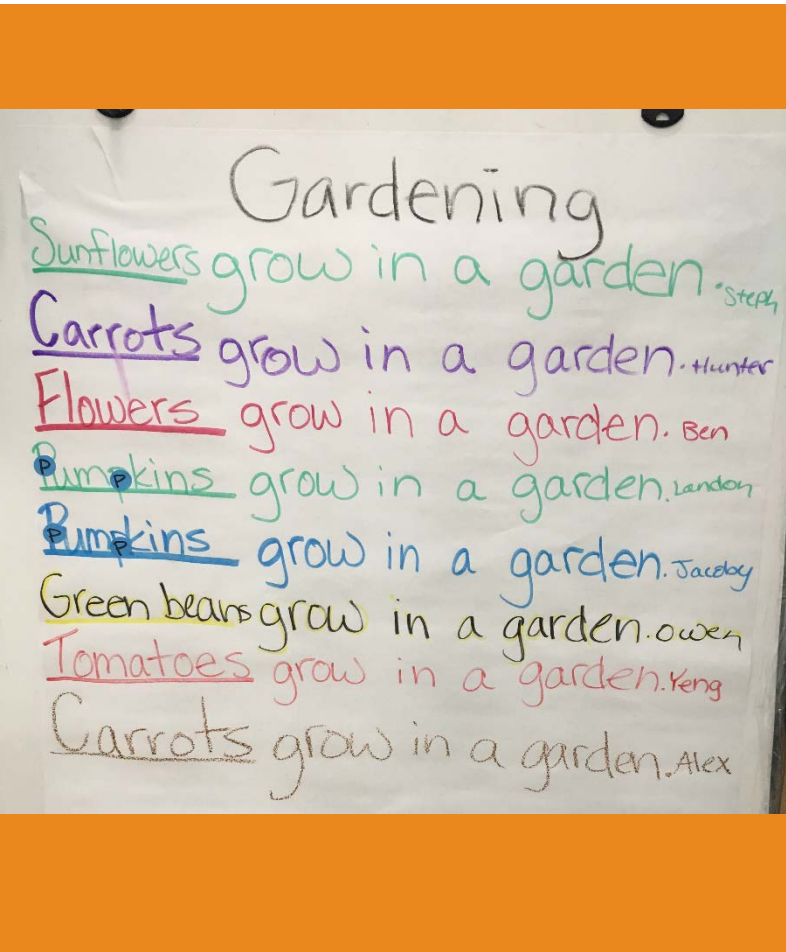 Gardening
Sunflowers grow in a garden. Steph
Carrots grow in a garden. Hunter
Flowers grow in a garden. Ben
Pumpkins grow in a garden. Landon
Pumpkins grow in a garden. Jacoby
Green beans grow in a garden. Owen
Tomatoes grow in a garden. Yeng
Carrots grow in a garden. Alex